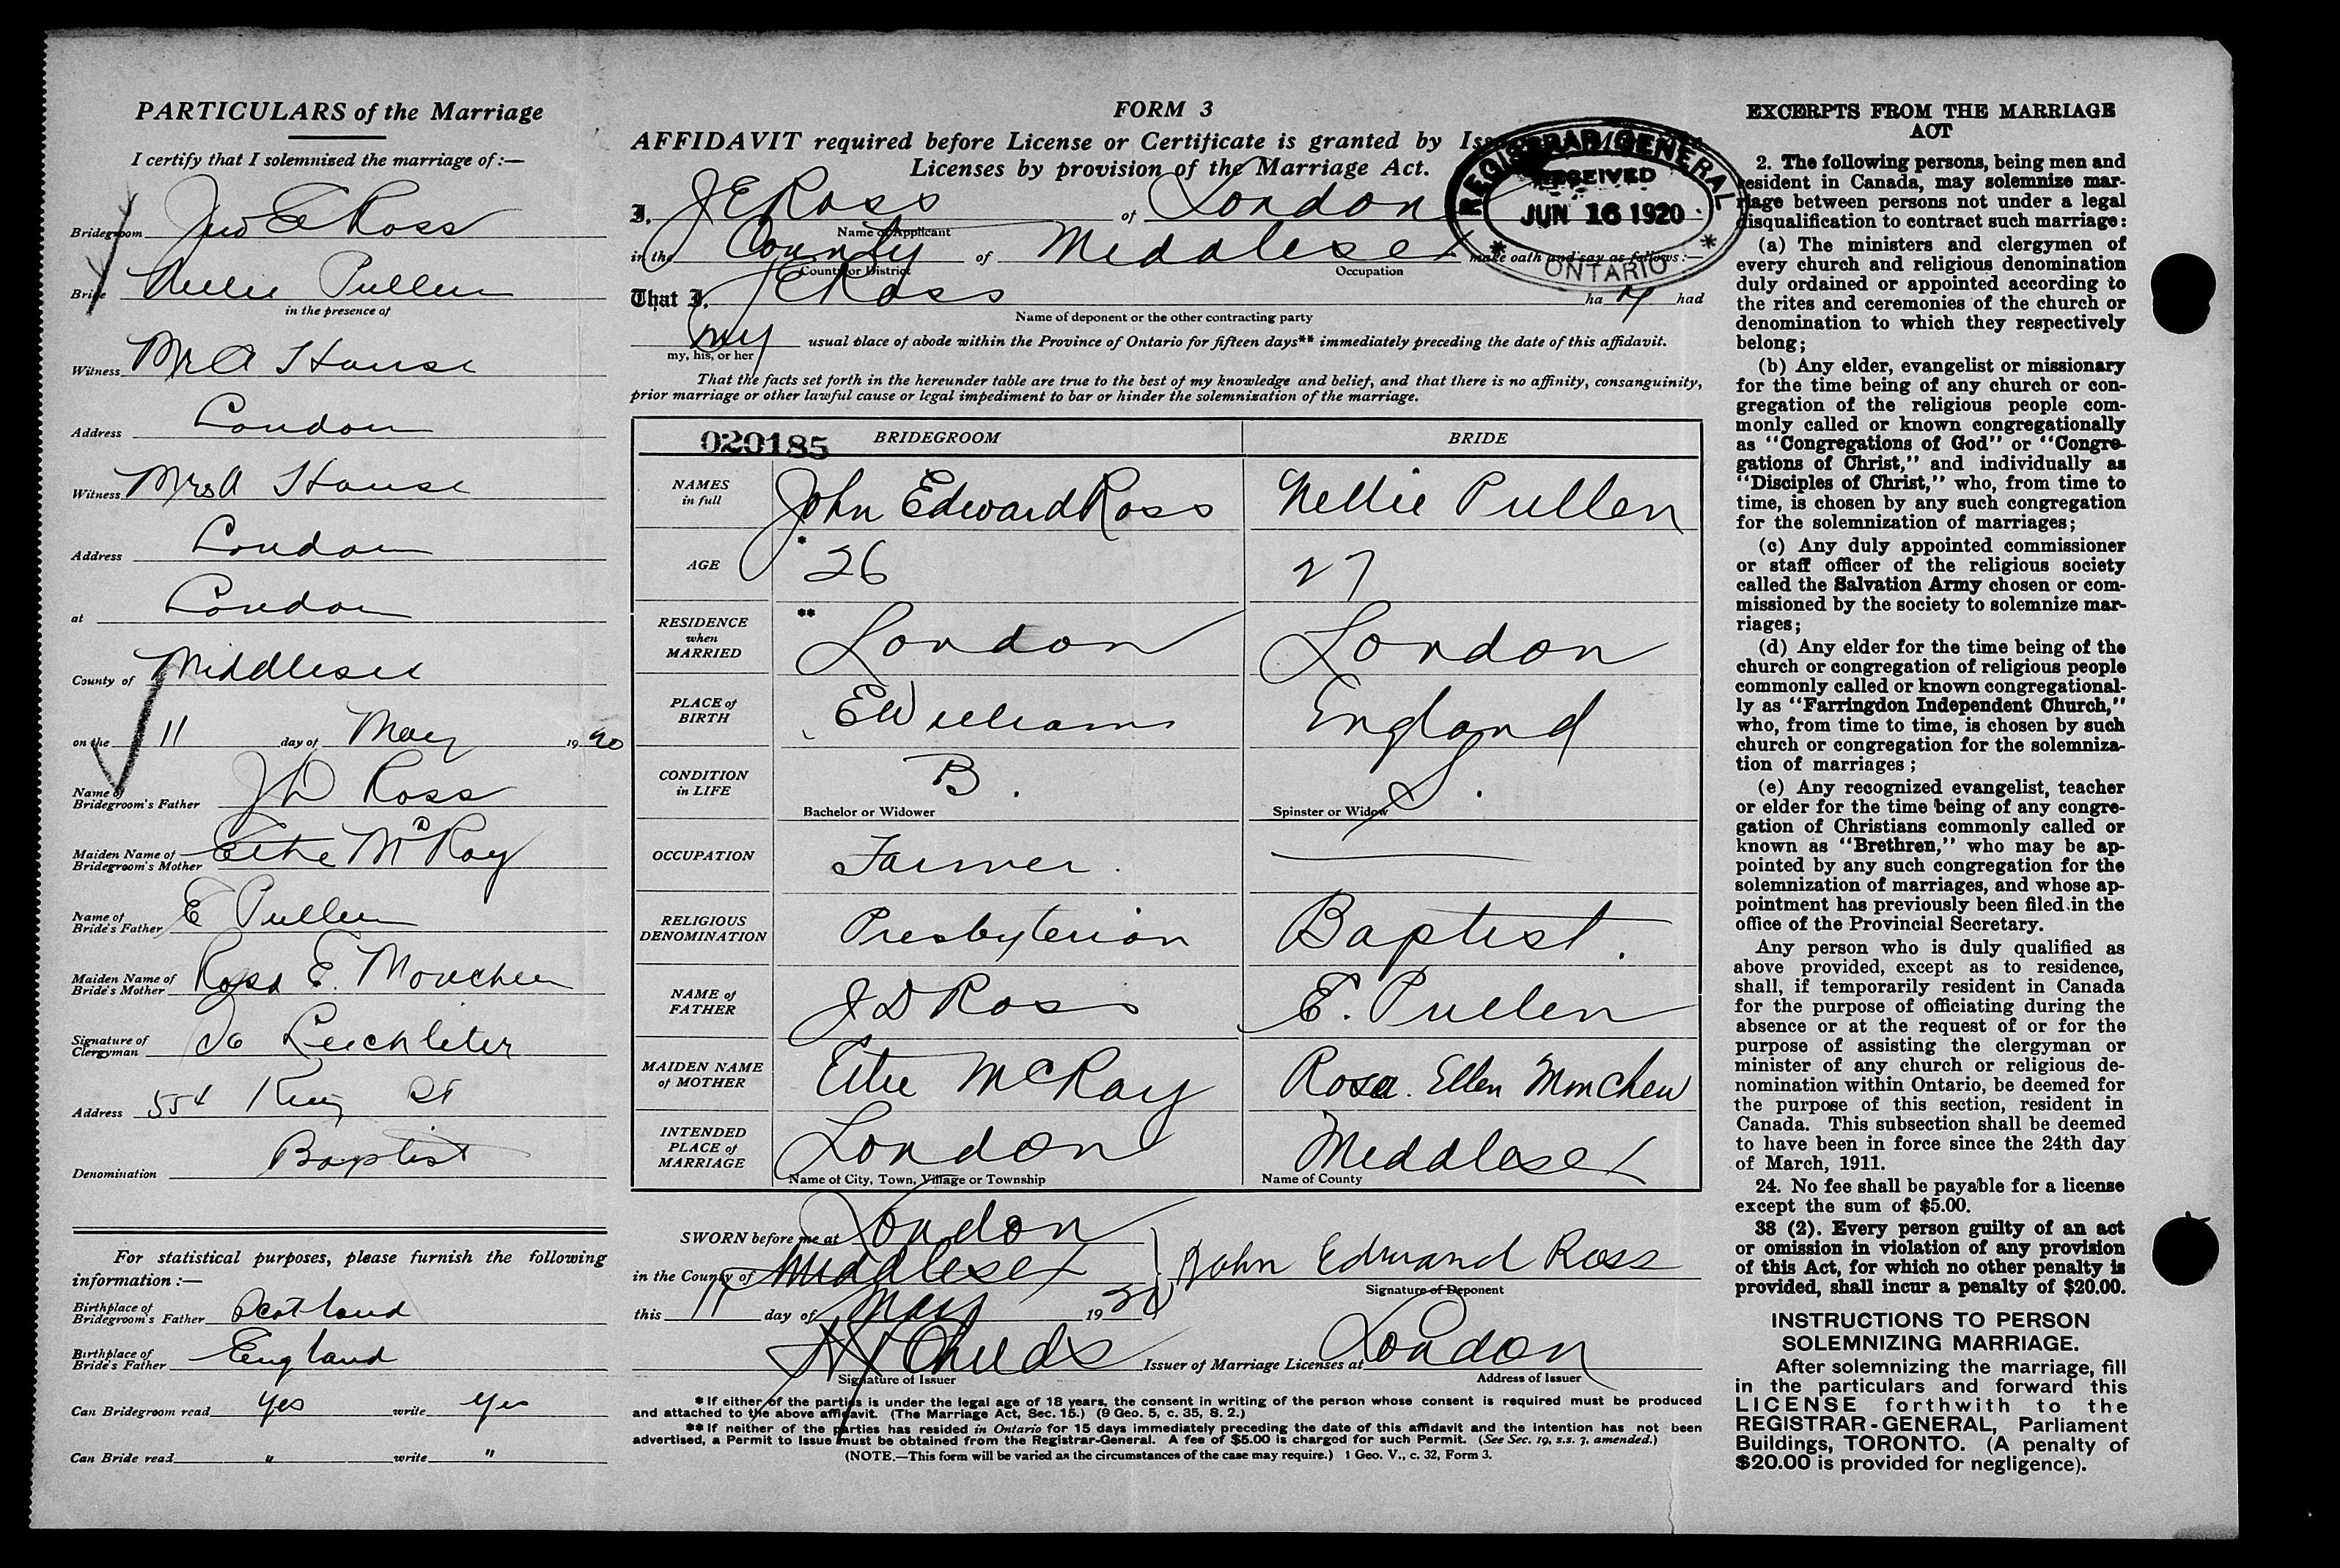 PARTICULARS of the Marriage
I certify that I solemnized the marriage of:—
Bridegroom Jno E Ross
Bride Nellie Pullen
in the presence of
Witness Mr A House
Address London
Witness Mrs A House
Address London
at London
County of Middlesex
on the 11 day of May 1920
Name of Bridegroom's Father J D Ross
Maiden Name of Bridegroom's Mother McRay
Name of Bride's Father E Pullen
Maiden Name of Bride's Mother Rosa E.
Signature of Clergyman
Address King St
Denomination Baptist
For statistical purposes, please furnish the following
information :—
Birthplace of Bridegroom's Father Scotland
Birthplace of Bride's Father England
Can Bridegroom read yes write yes
Can Bride read " write "
FORM 3
AFFIDAVIT required before License or Certificate is granted by
Licenses by provision of the Marriage Act.
I, J E Ross of London
Name of Applicant
in the County of Middlesex make oath and say as follows:—
County or District Occupation
That I, J E Ross ha had
Name of deponent or the other contracting party
my usual place of abode within the Province of Ontario for fifteen days** immediately preceding the date of this affidavit.
my, his, or her
That the facts set forth in the hereunder table are true to the best of my knowledge and belief, and that there is no affinity, consanguinity,
prior marriage or other lawful cause or legal impediment to bar or hinder the solemnization of the marriage.
REGISTRAR GENERAL
RECEIVED
JUN 16 1920
* ONTARIO *
020185 BRIDEGROOM BRIDE
NAMES in full John Edward Ross Nellie Pullen
AGE * 26 27
RESIDENCE when MARRIED ** London London
PLACE of BIRTH E Williams England
CONDITION in LIFE B. S.
Bachelor or Widower Spinster or Widow
OCCUPATION Farmer.
RELIGIOUS DENOMINATION Presbyterian Baptist.
NAME of FATHER J D Ross E. Pullen
MAIDEN NAME of MOTHER McRay Rosa. Ellen
INTENDED PLACE of MARRIAGE London Middlesex
Name of City, Town, Village or Township Name of County
SWORN before me at London
in the County of Middlesex John Edward Ross
Signature of Deponent
this 11 day of May 1920
Childs Issuer of Marriage Licenses at London
Signature of Issuer Address of Issuer
* If either of the parties is under the legal age of 18 years, the consent in writing of the person whose consent is required must be produced
and attached to the above affidavit. (The Marriage Act, Sec. 15.) (9 Geo. 5, c. 35, S. 2.)
** If neither of the parties has resided in Ontario for 15 days immediately preceding the date of this affidavit and the intention has not been
advertised, a Permit to Issue must be obtained from the Registrar-General. A fee of $5.00 is charged for such Permit. (See Sec. 19, s.s. 7, amended.)
(NOTE.—This form will be varied as the circumstances of the case may require.) 1 Geo. V., c. 32, Form 3.
EXCERPTS FROM THE MARRIAGE
ACT
2. The following persons, being men and
resident in Canada, may solemnize mar-
riage between persons not under a legal
disqualification to contract such marriage:
(a) The ministers and clergymen of
every church and religious denomination
duly ordained or appointed according to
the rites and ceremonies of the church or
denomination to which they respectively
belong;
(b) Any elder, evangelist or missionary
for the time being of any church or con-
gregation of the religious people com-
monly called or known congregationally
as "Congregations of God" or "Congre-
gations of Christ," and individually as
"Disciples of Christ," who, from time to
time, is chosen by any such congregation
for the solemnization of marriages;
(c) Any duly appointed commissioner
or staff officer of the religious society
called the Salvation Army chosen or com-
missioned by the society to solemnize mar-
riages;
(d) Any elder for the time being of the
church or congregation of religious people
commonly called or known congregational-
ly as "Farringdon Independent Church,"
who, from time to time, is chosen by such
church or congregation for the solemniza-
tion of marriages ;
(e) Any recognized evangelist, teacher
or elder for the time being of any congre-
gation of Christians commonly called or
known as "Brethren," who may be ap-
pointed by any such congregation for the
solemnization of marriages, and whose ap-
pointment has previously been filed in the
office of the Provincial Secretary.
Any person who is duly qualified as
above provided, except as to residence,
shall, if temporarily resident in Canada
for the purpose of officiating during the
absence or at the request of or for the
purpose of assisting the clergyman or
minister of any church or religious de-
nomination within Ontario, be deemed for
the purpose of this section, resident in
Canada. This subsection shall be deemed
to have been in force since the 24th day
of March, 1911.
24. No fee shall be payable for a license
except the sum of $5.00.
38 (2). Every person guilty of an act
or omission in violation of any provision
of this Act, for which no other penalty is
provided, shall incur a penalty of $20.00.
INSTRUCTIONS TO PERSON
SOLEMNIZING MARRIAGE.
After solemnizing the marriage, fill
in the particulars and forward this
LICENSE forthwith to the
REGISTRAR-GENERAL, Parliament
Buildings, TORONTO. (A penalty of
$20.00 is provided for negligence).